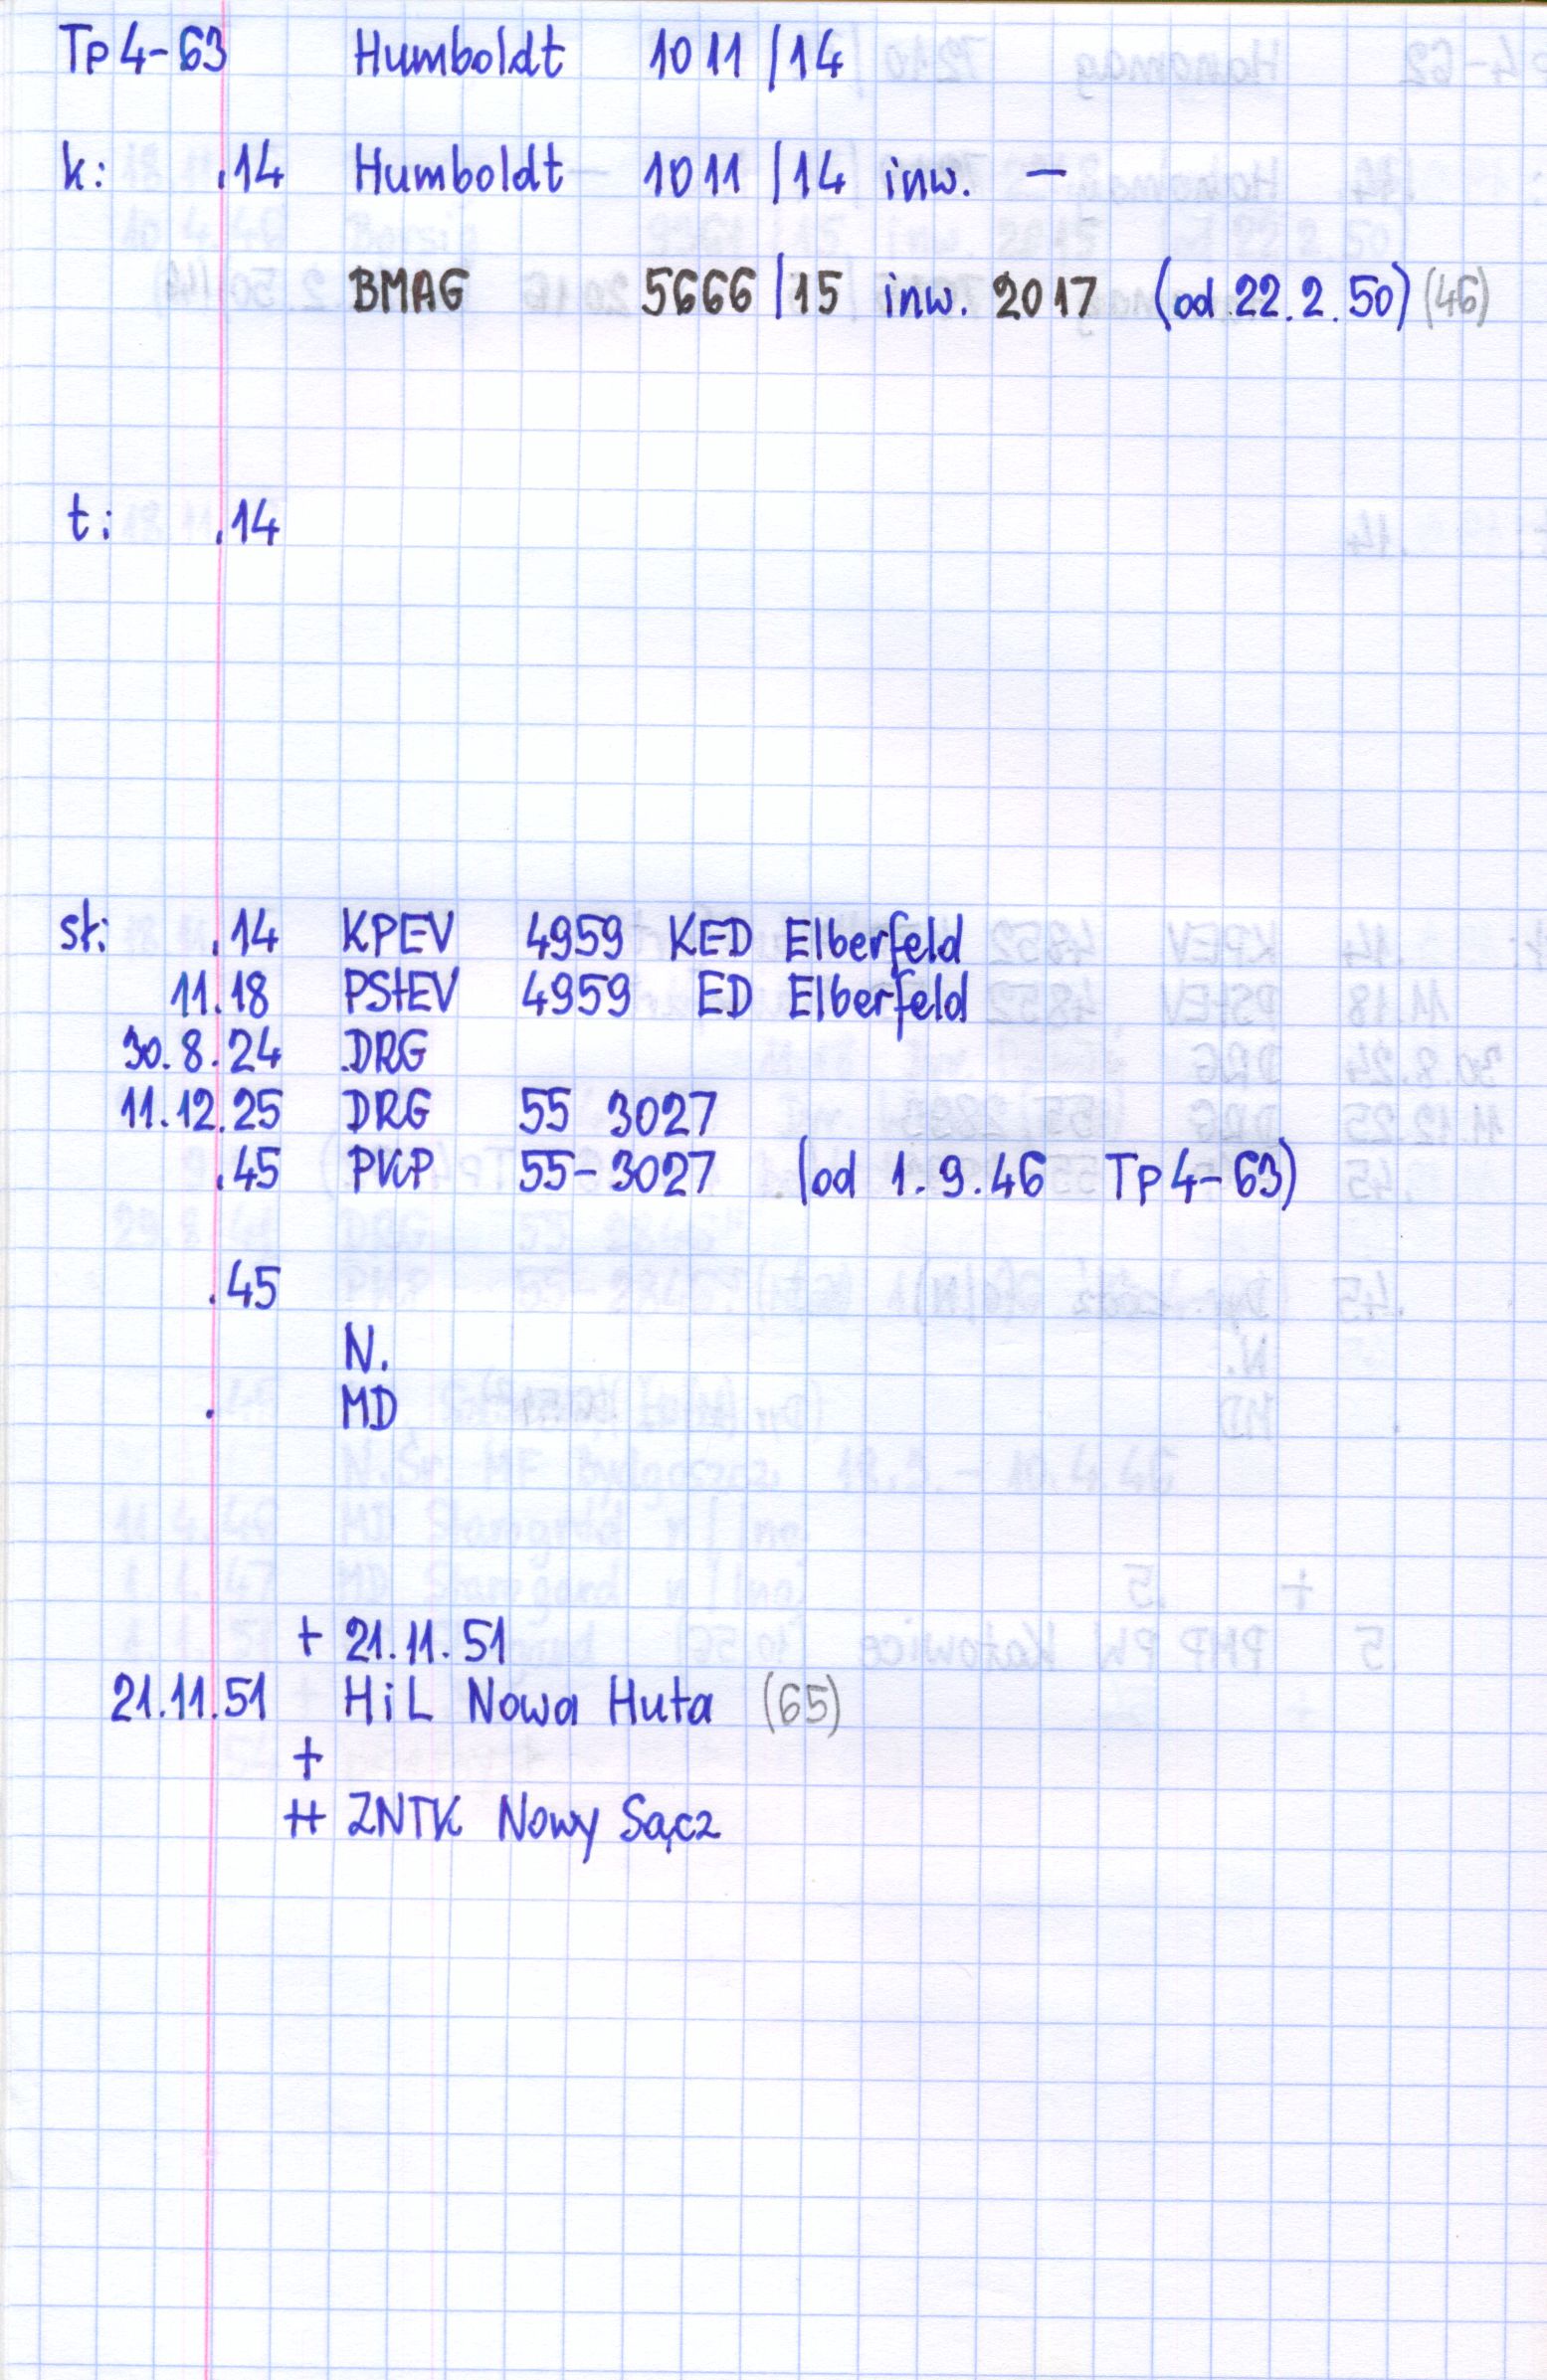 Tp4-63 Humboldt 1011/14
k: .14 Humboldt 1011/14 inw. —
BMAG 5666/15 inw. 2017 (od 22.2.50) (46)
t: .14
st: .14 KPEV 4959 KED Elberfeld
11.18 PStEV 4959 ED Elberfeld
30.8.24 DRG
11.12.25 DRG 55 3027
.45 PKP 55-3027 (od 1.9.46 Tp4-63)
.45
N.
. MD
+ 21.11.51
21.11.51 HiL Nowa Huta (65)
+
++ ZNTK Nowy Sącz